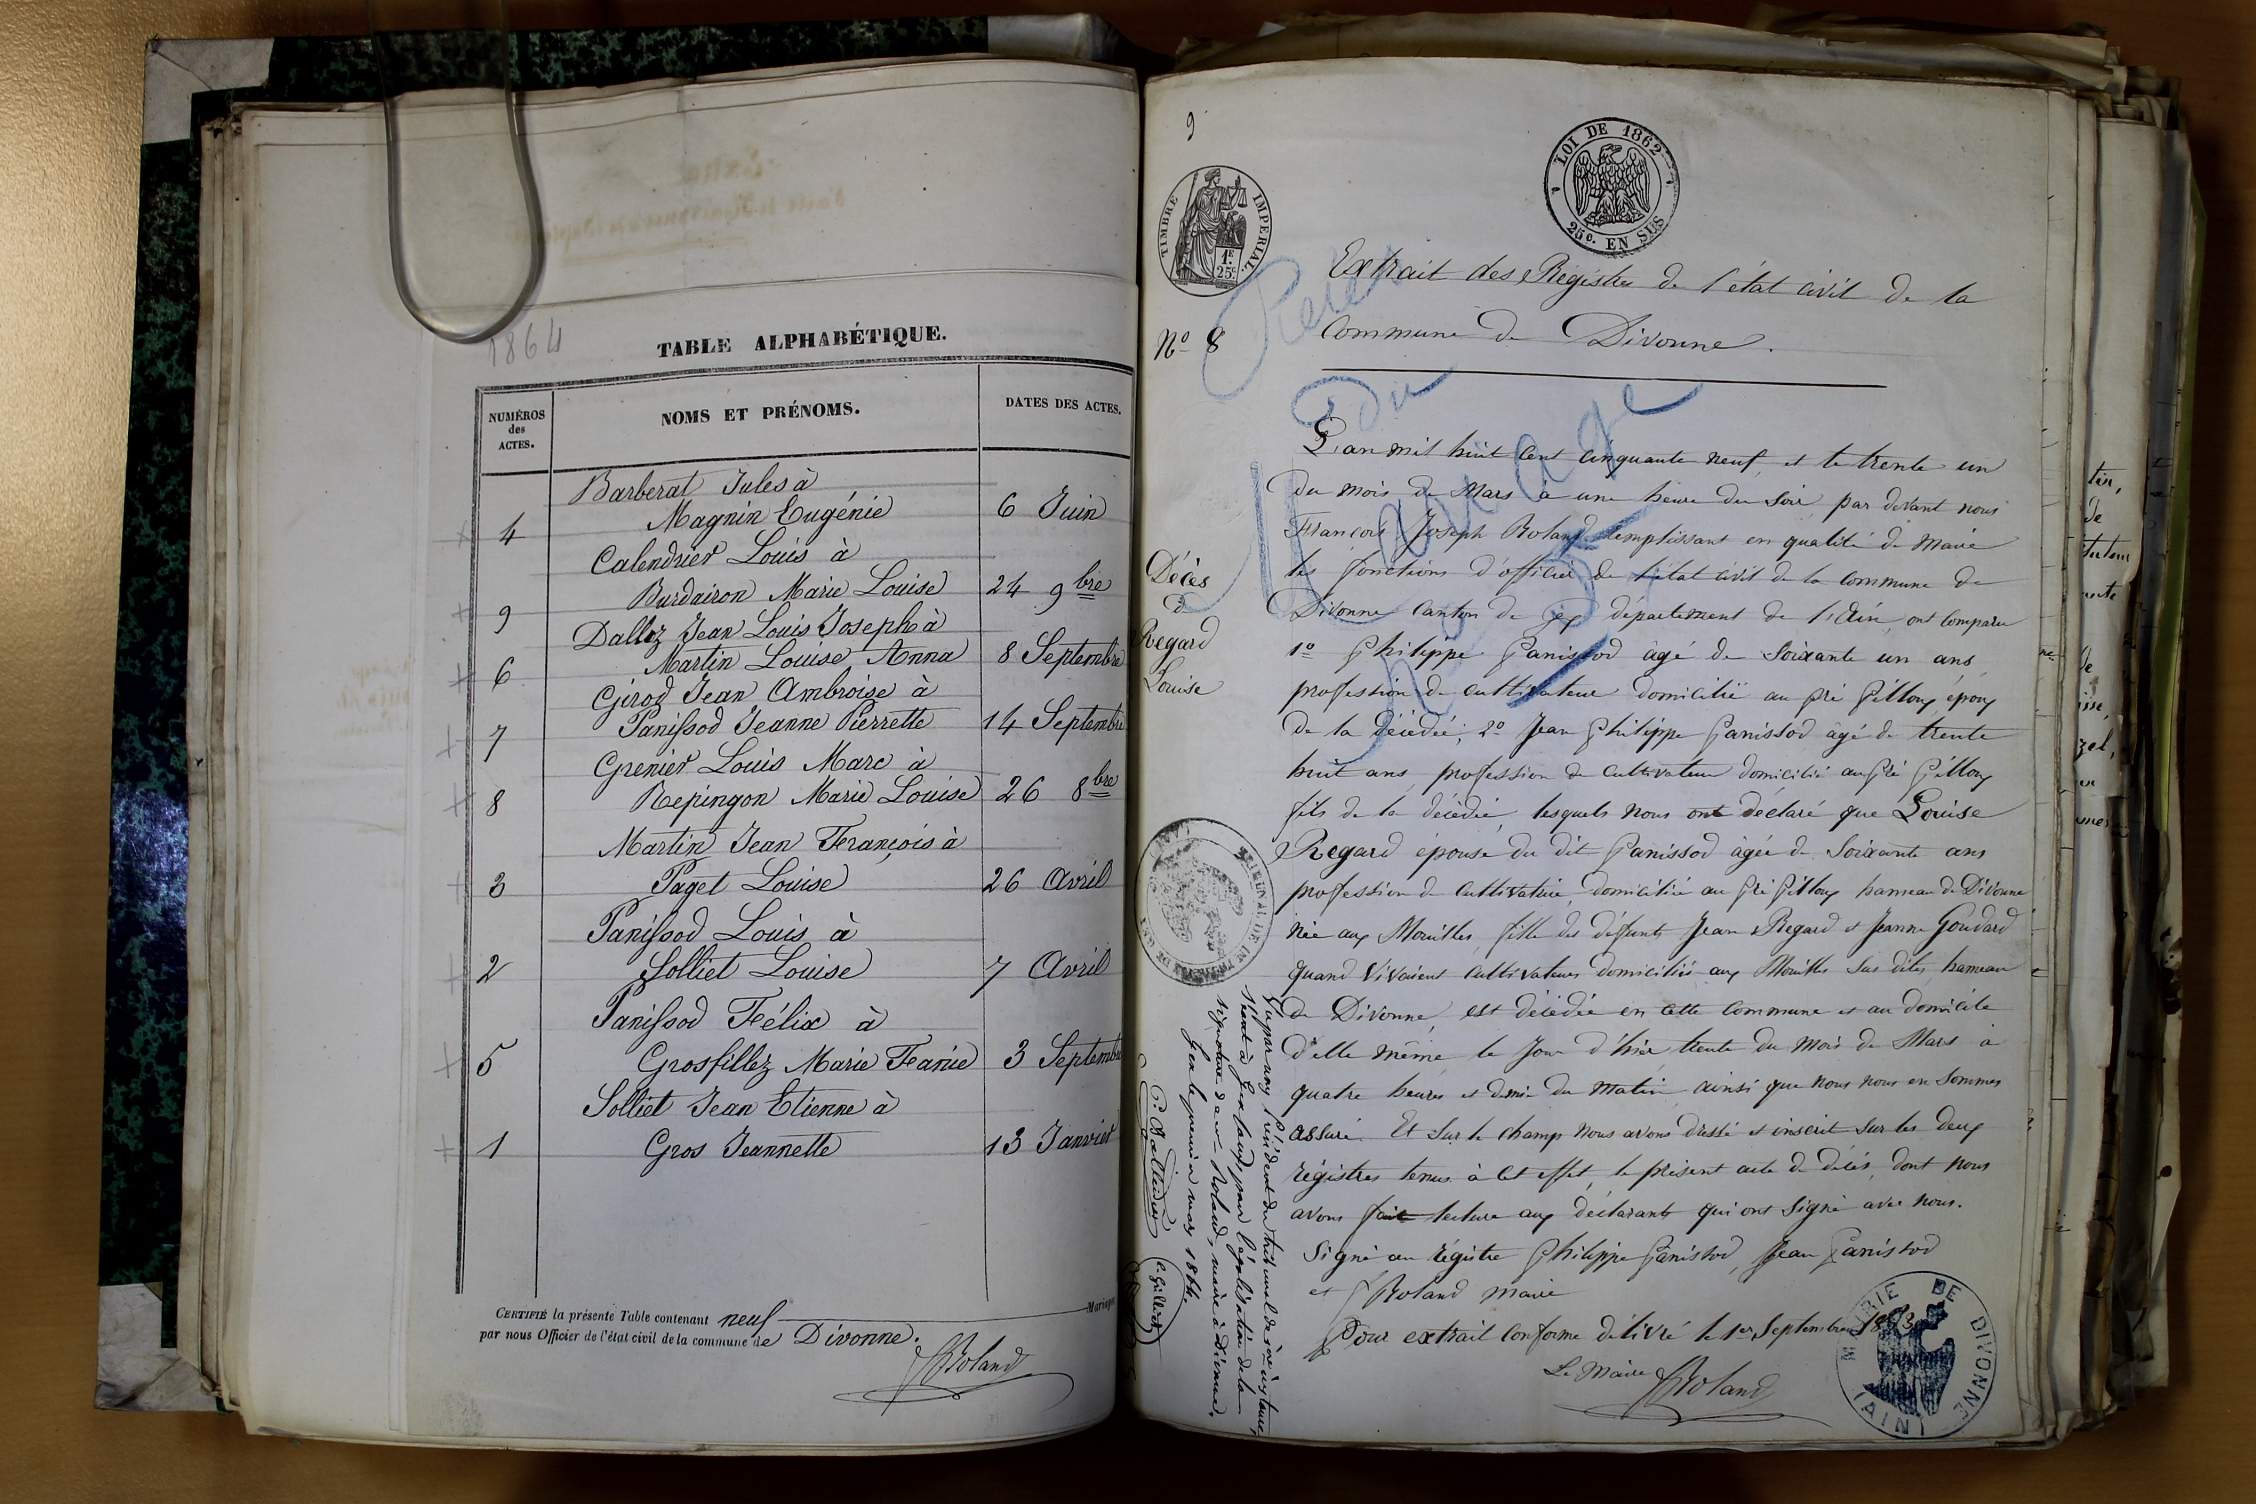 1864
TABLE ALPHABÉTIQUE.
NUMÉROS
des
ACTES.
NOMS ET PRÉNOMS.
DATES DES ACTES.
Barberat Jules à
4 Magnin Eugénie 6 Juin
Calendrier Louis à
9 Burdairon Marie Louise 24 9bre
Dalloz Jean Louis Joseph à
6 Martin Louise Anna 8 Septembre
Girod Jean Ambroise à
7 Panissod Jeanne Pierrette 14 Septembre
Grenier Louis Marc à
8 Repingon Marie Louise 26 8bre
Martin Jean François à
3 Paget Louise 26 Avril
Panissod Louis à
2 Solliet Louise 7 Avril
Panissod Félix à
5 Grosfillez Marie Fanie 3 Septembre
Solliet Jean Etienne à
1 Gros Jeannette 13 Janvier
CERTIFIÉ la présente Table contenant neuf Mariages
par nous Officier de l'état civil de la commune de Divonne.
Roland
TIMBRE IMPERIAL.
1F.
25c.
LOI DE 1862
25c. EN SUS
Extrait des Registres de l'état civil de la
Commune de Divonne.
No 8
Décès
de
Regard
Louise
L'an mil huit cent cinquante neuf, et le trente un
du mois de Mars à une heure du soir, par devant nous
François Joseph Roland remplissant en qualité de Maire
les fonctions d'officier de l'état civil de la commune de
Divonne canton de Gex département de l'Ain, ont comparu
1o Philippe Panissod âgé de soixante un ans
profession de cultivateur domicilié au pré Gilloux, époux
de la décédée, 2o Jean Philippe Panissod âgé de trente
huit ans, profession de cultivateur domicilié au Pré Gilloux
fils de la décédée, lesquels nous ont déclaré que Louise
Regard épouse du dit Panissod âgée de soixante ans
profession de cultivatrice, domiciliée au Pré Gilloux hameau de Divonne
née aux Mouilles, fille des défunts Jean Regard et Jeanne Goudard
quand vivaient cultivateurs domiciliés aux Mouilles sus dites hameau
de Divonne, est décédée en cette commune et au domicile
d'elle même le jour d'hier trente du mois de Mars à
quatre heures et demie du matin ainsi que nous nous en sommes
assuré. Et sur le champ nous avons dressé et inscrit sur les deux
régistres tenus à cet effet, le présent acte de décès, dont nous
avons fait lecture aux déclarants qui ont signé avec nous.
Signé au régistre Philippe Panissod, Jean Panissod
et Roland maire
Pour extrait conforme délivré le 1er Septembre 1863
Le Maire Roland
MAIRIE DE DIVONNE
(AIN)
Vu par nous, Président du tribunal de 1ère instance
séant à Gex, pour légalisation de la
signature de Mr Roland, maire à Divonne.
Gex le premier mars 1864.